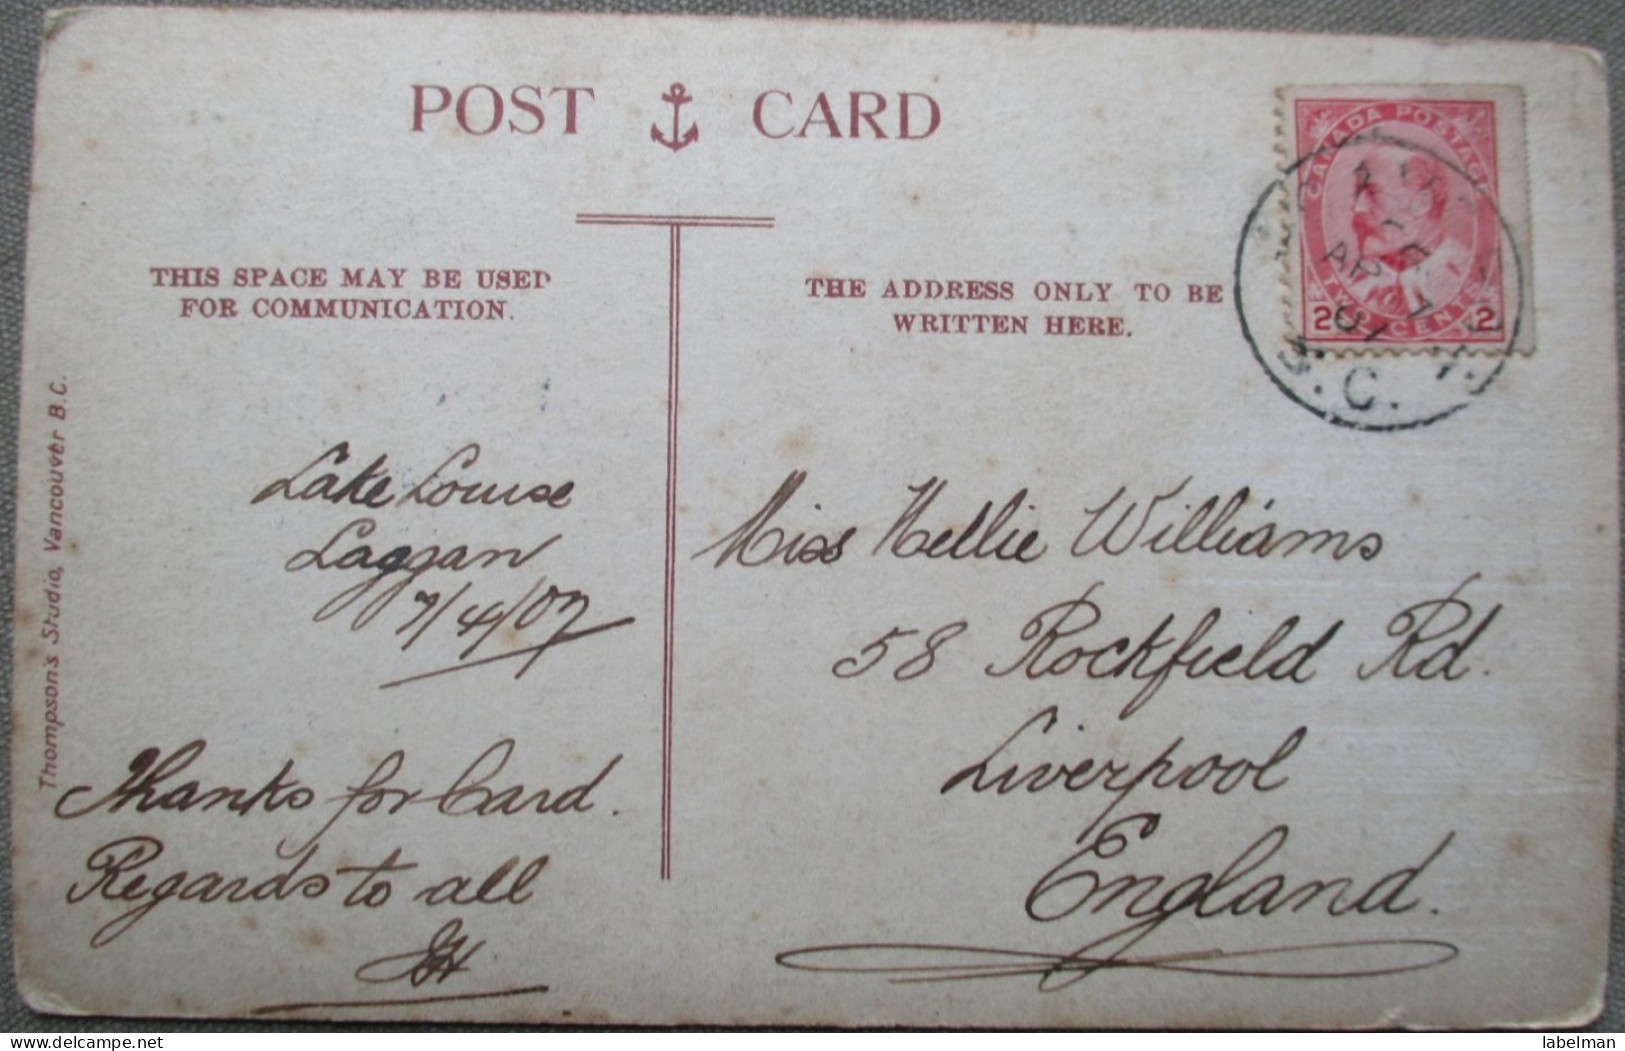 POST CARD
THIS SPACE MAY BE USED
FOR COMMUNICATION.
THE ADDRESS ONLY TO BE
WRITTEN HERE.
CANADA POSTAGE
2 CENTS 2
AP 7
07
B.C.
Thompson's Studio, Vancouver B.C.
Lake Louise
Laggan
7/4/07
Thanks for Card.
Regards to all
Miss Nellie Williams
58 Rockfield Rd.
Liverpool
England.
labelman
delcampe.net